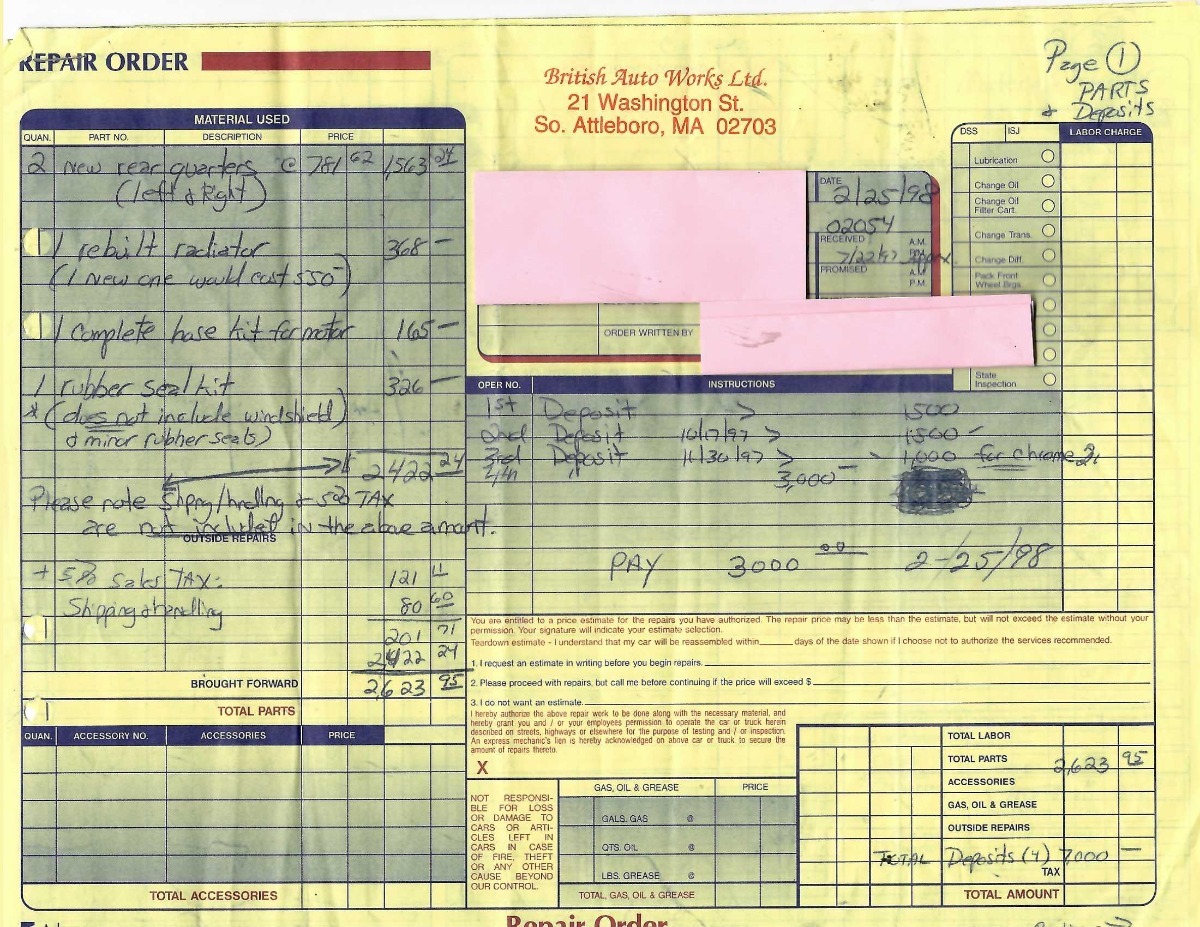 REPAIR ORDER
British Auto Works Ltd.
21 Washington St.
So. Attleboro, MA 02703
Page 1
PARTS
& Deposits
MATERIAL USED
QUAN. PART NO. DESCRIPTION PRICE
2 New rear quarters @ 781 62 1,563 24
(left & Right)
1 rebilt radiator 368 —
(1 New one would cost 550 —)
1 Complete hose kit for motor 165 —
1 rubber seal kit 326 —
* (does not include windshield)
& minor rubber seals)
$ 2422 24
Please note Shipng/hndling & 5% TAX
are not included in the above amount.
OUTSIDE REPAIRS
+ 5% Sales TAX: 121 11
Shipping & handling 80 60
201 71
2422 24
BROUGHT FORWARD 2,623 95
TOTAL PARTS
QUAN. ACCESSORY NO. ACCESSORIES PRICE
TOTAL ACCESSORIES
DATE
2/25/98
02054
RECEIVED A.M.
7/22/97 P.M.
PROMISED A.M.
P.M.
ORDER WRITTEN BY
DSS ISJ LABOR CHARGE
Lubrication
Change Oil
Change Oil
Filter Cart.
Change Trans.
Change Diff.
Pack Front
Wheel Brgs.
State
Inspection
OPER NO. INSTRUCTIONS
1st Deposit > 1500
2nd Deposit 10/17/97 > 1,500 —
3rd Deposit 11/30/97 > 1,000 for chrome
4th " 3,000 —
PAY 3000 00 2-25/98
You are entitled to a price estimate for the repairs you have authorized. The repair price may be less than the estimate, but will not exceed the estimate without your
permission. Your signature will indicate your estimate selection.
Teardown estimate - I understand that my car will be reassembled within ______ days of the date shown if I choose not to authorize the services recommended.
1. I request an estimate in writing before you begin repairs.
2. Please proceed with repairs, but call me before continuing if the price will exceed $
3. I do not want an estimate.
I hereby authorize the above repair work to be done along with the necessary material, and
hereby grant you and / or your employees permission to operate the car or truck herein
described on streets, highways or elsewhere for the purpose of testing and / or inspection.
An express mechanic's lien is hereby acknowledged on above car or truck to secure the
amount of repairs thereto.
X
NOT RESPONSI-
BLE FOR LOSS
OR DAMAGE TO
CARS OR ARTI-
CLES LEFT IN
CARS IN CASE
OF FIRE, THEFT
OR ANY OTHER
CAUSE BEYOND
OUR CONTROL.
GAS, OIL & GREASE PRICE
GALS. GAS @
QTS. OIL @
LBS. GREASE @
TOTAL, GAS, OIL & GREASE
TOTAL LABOR
TOTAL PARTS 2,623 95
ACCESSORIES
GAS, OIL & GREASE
OUTSIDE REPAIRS
TOTAL Deposits (4) 7000 —
TAX
TOTAL AMOUNT
Repair Order